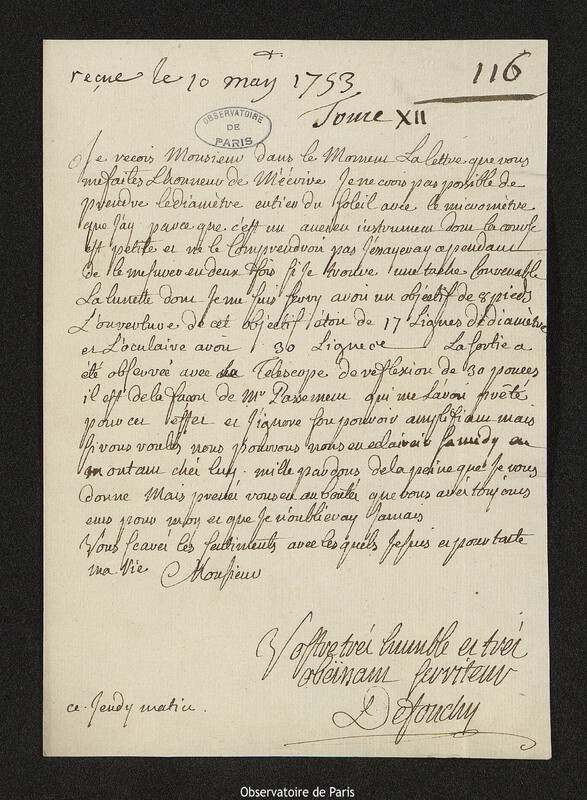 reçue le 10 may 1753
116
OBSERVATOIRE
DE
PARIS
Tome XII
Je recois Monsieur dans le Moment La lettre que vous
me faites L'honneur de M'ecrire Je ne crois pas possible de
prendre le diametre entier du soleil avec le micrometre
que J'ay parce que c'est un ancien instrument dont la course
est petite et ne le Comprendroit pas J'essayeray cependant
de le mesurer en deux fois si Je trouve une tache Convenable
La lunette dont Je me suis servy avoit un objectif de 8 pieds
L'ouverture de cet objectif etoit de 17 Lignes de diametre
et L'oculaire avoit 30 Lignes La sortie a
été observée avec Telescope de reflexion de 30 pouces
il est de la façon de Mr Passement qui me L'avoit preté
pour cet effet et J'ignore son pouvoir amplifiant mais
si vous voulés nous pourrons nous en eclaircir samedy en
montant chés luy. mille pardons de la peine que Je vous
donne Mais prenés vous en aux bontés que vous avés toujours
eües pour moy et que Je n'oublieray Jamais
Vous scavés les sentiments avec les quels Je suis et pour toute
ma vie Monsieur
Vostre tres humble et tres
obeissant serviteur
Defouchy
ce Jeudy matin.
Observatoire de Paris